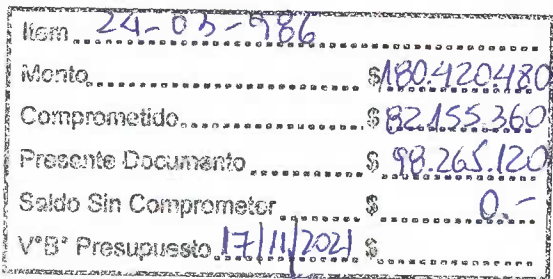 Item 24-03-986
Monto $180.420.480
Comprometido $82.155.360
Presente Documento $ 98.265.120
Saldo Sin Comprometer $ 0.-
V°B° Presupuesto 17/11/2021 $